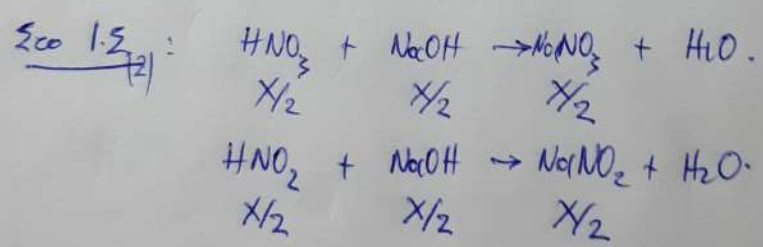 Στο Ι.Σ.(2): HNO₃ + NaOH → NaNO₃ + H₂O.
X/2 X/2 X/2
HNO₂ + NaOH → NaNO₂ + H₂O.
X/2 X/2 X/2